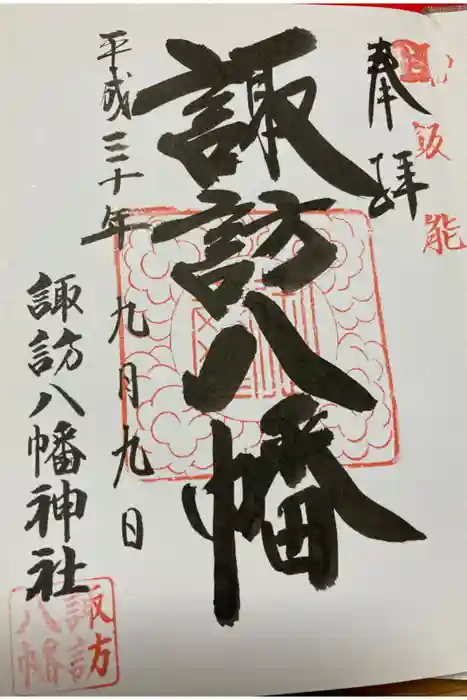 奉拝
諏訪八幡
平成三十年九月九日
諏訪八幡神社
飯能
諏訪
八幡